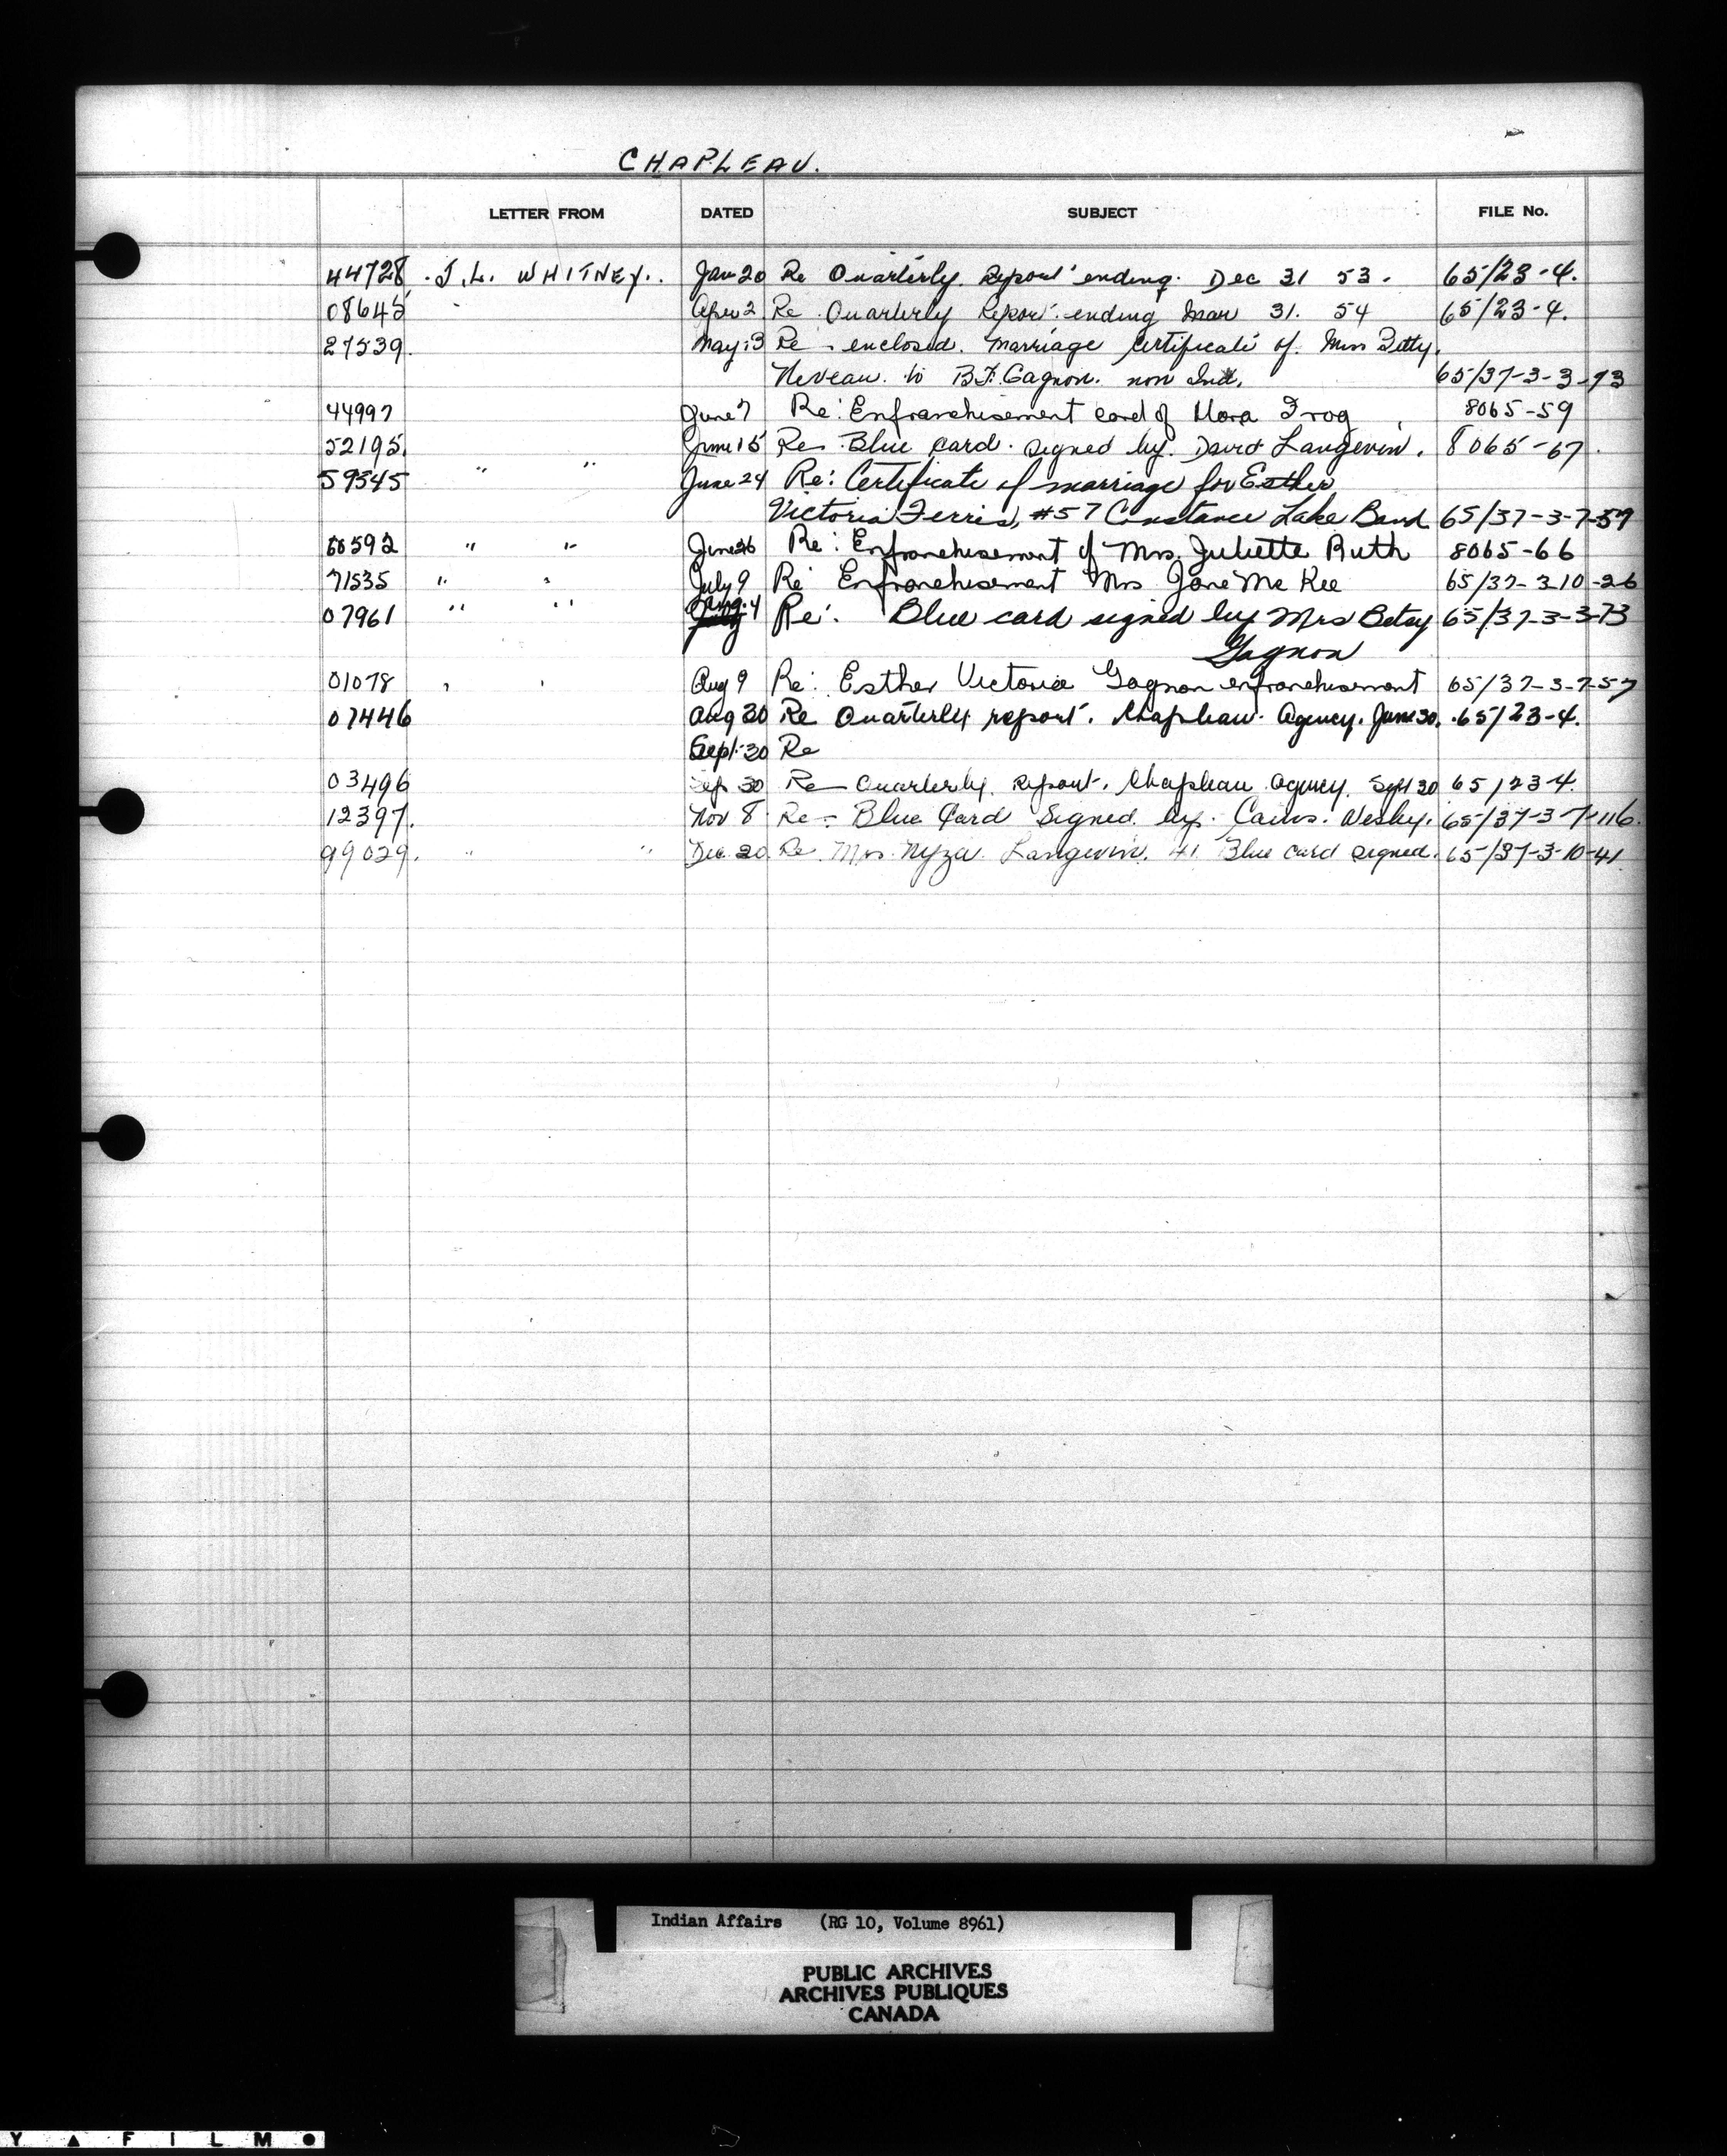 CHAPLEAU.
LETTER FROM DATED SUBJECT FILE No.
44728 . J.L. WHITNEY.. Jan 20 Re Quarterly Report ending. Dec 31 53. 65/23-4.
08645 Apr 2 Re Quarterly Report ending Mar 31. 54 65/23-4.
27539. May 13 Re enclosed. Marriage Certificate of. Miss Betty.
Neveau. to B.F. Gagnon. non Ind. 65/37-3-3-73
44997 June 7 Re: Enfranchisement card of Nora Frog 8065-59
52195. June 15 Re Blue card. signed by. David Langevin. 8065-67.
59545 " " June 24 Re: Certificate of marriage for Esther
Victoria Ferris, #57 Constance Lake Band 65/37-3-7-57
60592 " " June 26 Re: Enfranchisement of Mrs. Juliette Ruth 8065-66
71535 " " July 9 Re Enfranchisement Mrs Jane McKee 65/37-3-10-26
07961 " " Aug. 4 Re: Blue card signed by Mrs Betsy 65/37-3-3-73
Gagnon
01078 " " Aug 9 Re: Esther Victoria Gagnon enfranchisement 65/37-3-7-57
07446 Aug 20 Re Quarterly report. Chapleau. Agency. June 30. 65/23-4.
Sept. 30 Re
03496 Sep 30 Re Quarterly. Report. Chapleau agency. Sept 30 65/23-4.
12397. Nov 8 Re - Blue Card Signed. by. Wesley. 65/37-3-7-116.
99029. " " Dec. 20. Re. Mrs. Nyza. Langevin. 41 Blue card signed. 65/37-3-10-41
Indian Affairs (RG 10, Volume 8961)
PUBLIC ARCHIVES
ARCHIVES PUBLIQUES
CANADA
Y ▲ F I L M ●